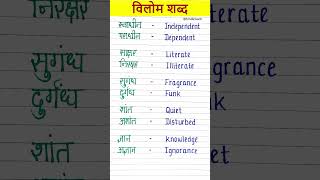 विलोम शब्द
स्वाधीन - Independent
पराधीन - Dependent
साक्षर - Literate
निरक्षर - Illiterate
सुगंध - Fragrance
दुर्गंध - Funk
शांत - Quiet
अशांत - Disturbed
ज्ञान - Knowledge
अज्ञान - Ignorance
निरक्षर
सुगंध
दुर्गंध
शांत